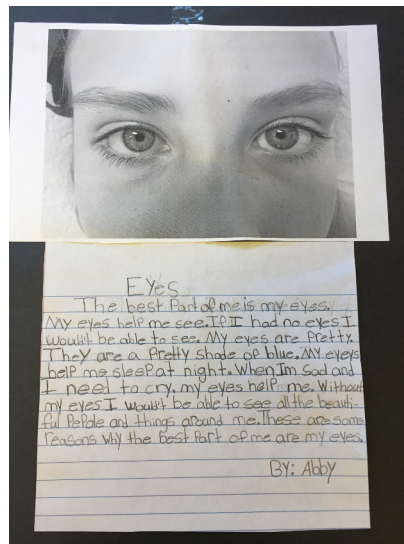 Eyes
The best Part of me is my eyes.
My eyes help me see. If I had no eyes I
woul'dt be able to see. My eyes are Pretty.
They are a Pretty shade of blue. My eyeys
help me sleep at night. When Im Sad and
I need to cry. my eyes help me. Without
my eyes I woul't be able to see all the beauti-
ful PePole and things around me. These are some
reasons why the best Part of me are my eyes.
By: Abby